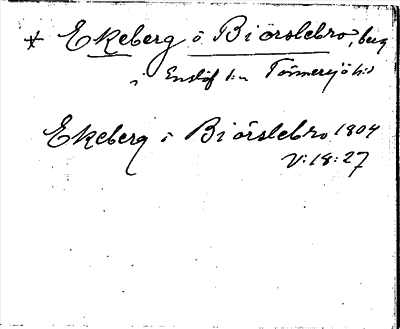 * Ekeberg å Biörslebro, berg
i Enslöf sn Tönnersjö hd
Ekeberg i Biörslebro 1804
V: 18: 27